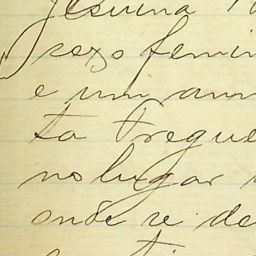 Jesuina
sexo femin
e um ann
ta Fregue
no lugar
onde se de